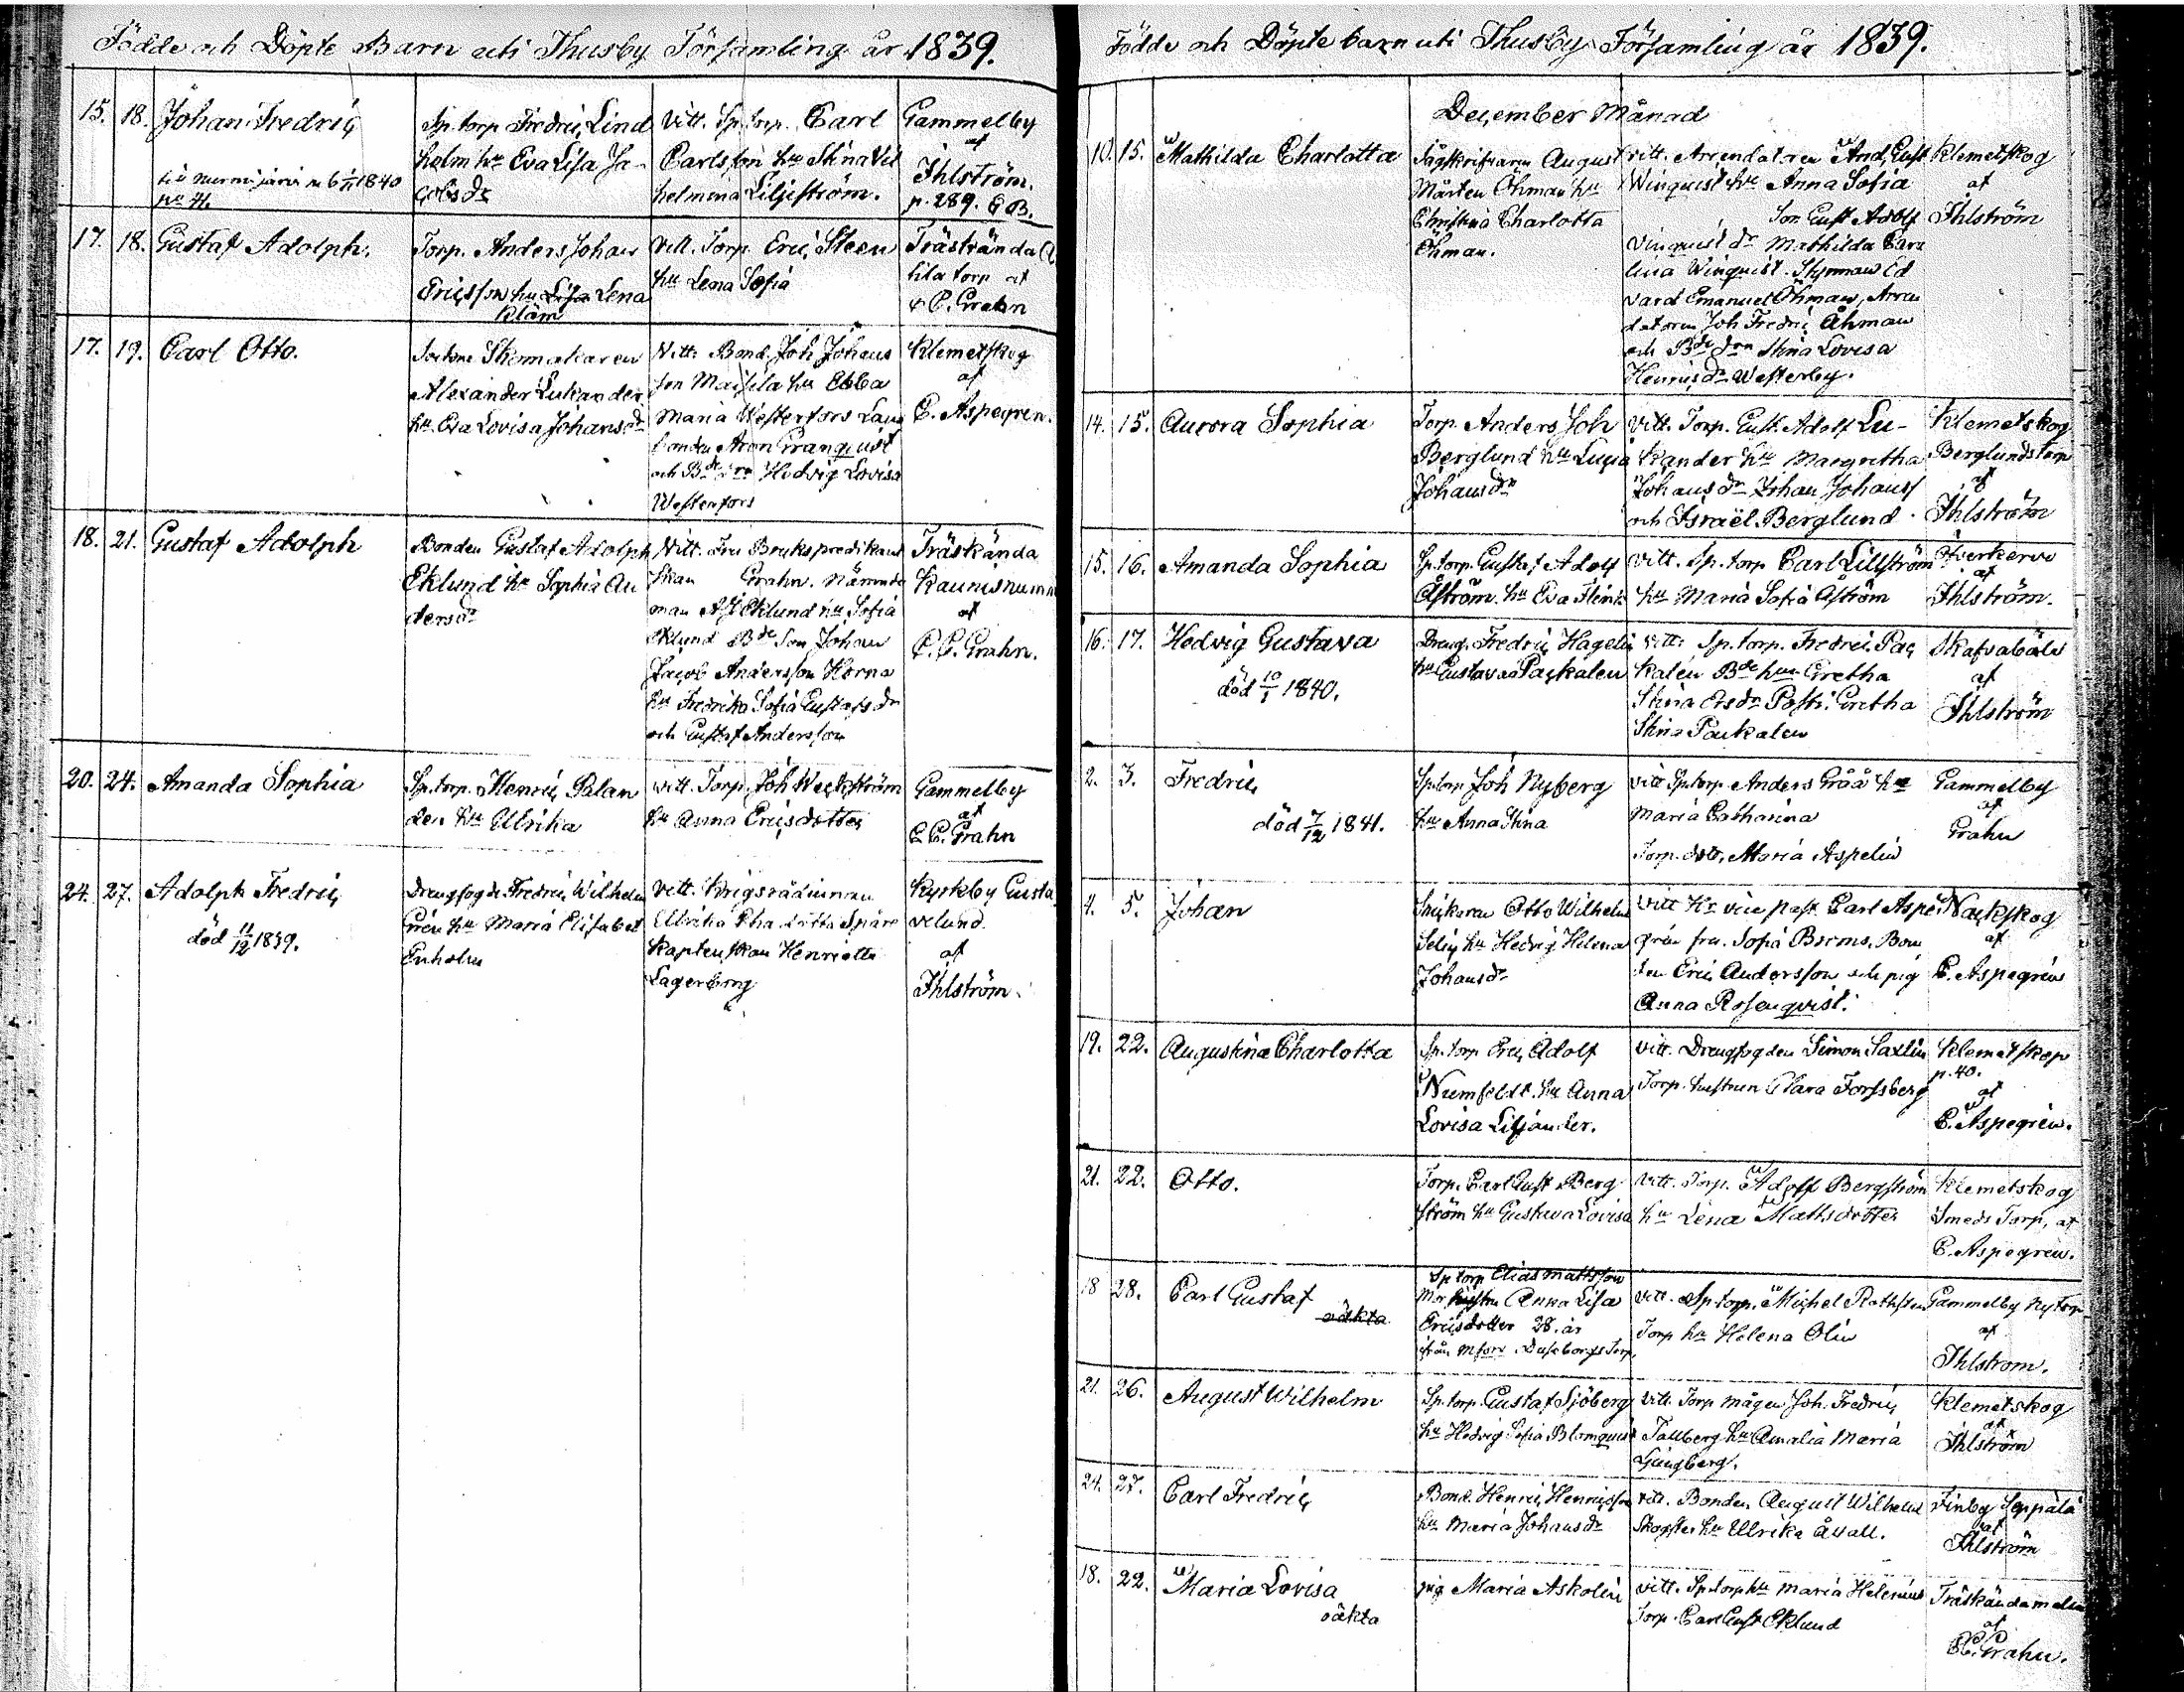 Födde och Döpte Barn uti Thusby Församling år 1839.
15. 18. Johan Fredric
1840
Sp. torp Fredric Lind
holm hu Eva Lisa Ja-
cobsdr
Vitt. Sp. torp. Carl
Carlsson hu Stina Vil
helmina Liljeström.
Gammelby
af
Ihlström.
p. 289. G B.
17. 18. Gustaf Adolph.
Torp. Anders Johan
Ericsson hu Lisa Lena
Kläm
Vitt. Torp. Eric Steen
hu Lena Sofia
Träskända
torp af
C. Grahn
17. 19. Carl Otto.
Skomakaren
Alexander Lukander
hu Eva Lovisa Johansdr
Vitt. Bond. Joh Johans
son Maisila hu Ebba
Maria Westerfors
bonden Aron Granquist
och Bde drn Hedvig Lovisa
Westerfors
Klemetskog
af
C. Aspegren.
18. 21. Gustaf Adolph
Bonden Gustaf Adolph
Eklund hu Sophia An
dersdr
Vitt. Fru Brukspredikant
skan Grahn. Nämnde
man Eklund hu Sofia
Eklund Bde Son Johan
Jacob Andersson Herna
hu Fredrika Sofia Gustafsdr
och Gustaf Andersson
Träskända
Kaunisnummi
af
C. C. Grahn.
20. 24. Amanda Sophia
Sp. torp. Henric Palan
der hu Ulrika
Vitt. Torp. Joh Weckström
hu Anna Ericsdotter
Gammelby
af
C. C. Grahn
24. 27. Adolph Fredric
död 11/12 1839.
Drengfogde Fredric Wilhelm
Grén hu Maria Elisabet
Enholm
Vitt. Krigsrådinnan
Ulrika Charlotta Spåre
Kaptenskan Henriette
Lagerborg
Kyrkby Gusta
velund.
af
Ihlström.
Födde och Döpte barn uti Thusby Församling år 1839.
December Månad
10. 15. Mathilda Charlotta
Sågskrifvaren August
Mårten Öhman hu
Christina Charlotta
Öhman.
Vitt. Arrendatoren And. Gust
Winquist hu Anna Sofia
Son Gust Adolf
Vinquist dr Mathilda Caro
lina Winquist. Styrman Ed
vard Emanuel Öhman, Arren
datoren Joh Fredric Åhman
och Bde drn Stina Lovisa
Henricsdr Westerby.
Klemetskog
af
Ihlström
14. 15. Aurora Sophia
Torp. Anders Joh
Berglund hu Lucia
Johansdr
Vitt. Torp. Gust. Adolf Lu-
kander hu Margretha
Johansdr Johan Johans
och Israël Berglund.
Klemetskog
Berglunds torp
af
Ihlström
15. 16. Amanda Sophia
Sp. torp. Gustaf Adolf
Åström. hu Eva Flink
Vitt. Sp. torp Carl Lillström
hu Maria Sofia Åström
af
Ihlström.
16. 17. Hedvig Gustava
död 10/1 1840.
Dreng. Fredric Hagelin
hu Gustava Packalen
Vitt. Sp. torp. Fredric Pac
kalén Bde hu Gretha
Stina Ersdr Posti. Gretha
Stina Packalen
Skafvaböle
af
Ihlström
2. 3. Fredric
död 7/12 1841.
Sp. torp Joh Nyberg
hu Anna Stina
Vitt Sp. torp Anders Grää hu
Maria Catharina
Torp. dotr. Maria Aspelin
Gammelby
af
Grahn
4. 5. Johan
Snickaren Otto Wilhelm
Selin hu Hedvig Helena
Johansdr
Vitt Hr vice past. Carl Aspe
grén fru. Sofia Boems, Bon
den Eric Andersson och pig
Anna Rosenqvist.
Nackskog
af
C. Aspegrén
19. 22. Augustina Charlotta
Sp. torp Eric Adolf
Numfeldt. hu Anna
Lovisa Liljander.
Vitt. Drengfogden Simon Saxlin
Torp. hustrun Clara Forssberg
Klemetskog
p. 40.
af
C. Aspegrén.
21. 22. Otto.
Torp. Carl Gust Berg
ström hu Gustava Lovisa
Vitt. Torp. Adolf Bergström
hu Lena Mathsdotter
Klemetskog
Smeds Torp, af
C. Aspegren.
18 28. Carl Gustaf
oäkta
Sp torp Elias Mattsson
Anna Lisa
Ericsdotter 28. år
från
Vitt. Sp. torp. Michel Rothsten
Torp hu Helena Olin
Gammelby Ny torp
af
Ihlström.
21. 26. August Wilhelm
Sp. torp. Gustaf Sjöberg
hu Hedvig Sofia Blomquist
Vitt. Torp mågen Joh. Fredric
Tallberg hu Amalia Maria
Ljungberg.
Klemetskog
af
Ihlström
24. 27. Carl Fredric
Bond. Henric Henricsson
hu Maria Johansdr
Vitt. Bonden August Wilhelm
Skogster hu Ulrika Åvall.
Finby Seppälä
af
Ihlström
18. 22. Maria Lovisa
oäkta
pig Maria Askolin
Vitt. Sp. torp hu Maria Helenius
Torp. Carl Gust Eklund
Träskända
af
C. Grahn.